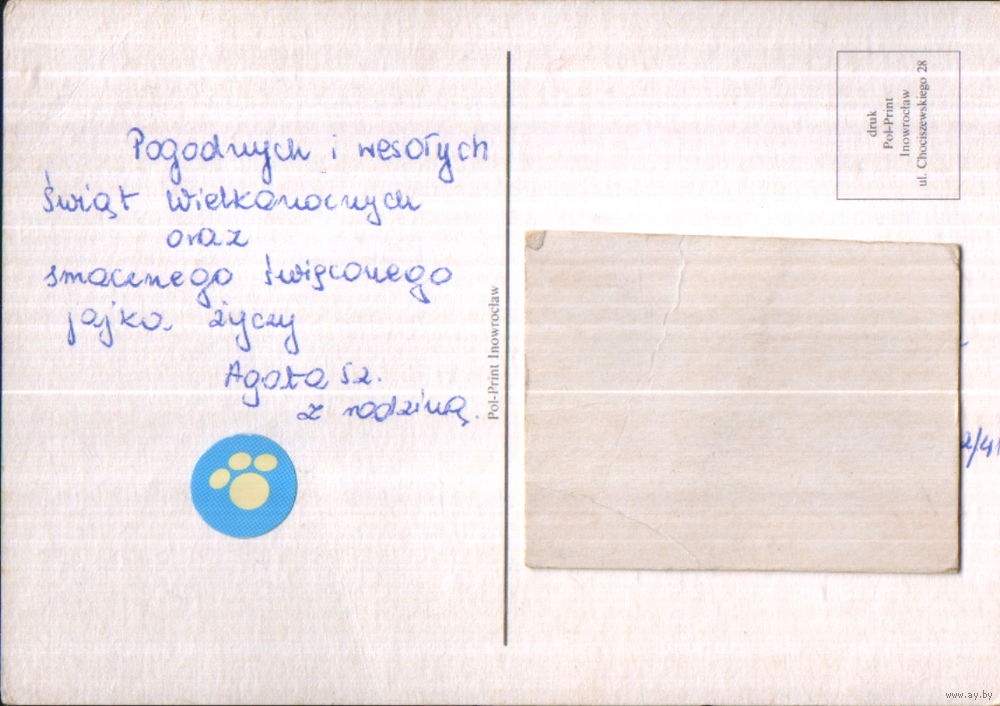 Pogodnych i wesołych
Świąt Wielkanocnych
oraz
smacznego święconego
jajka życzy
Agata Sz.
z rodziną.
Pol-Print Inowrocław
druk
Pol-Print
Inowrocław
ul. Chociszewskiego 28
2/41
www.ay.by